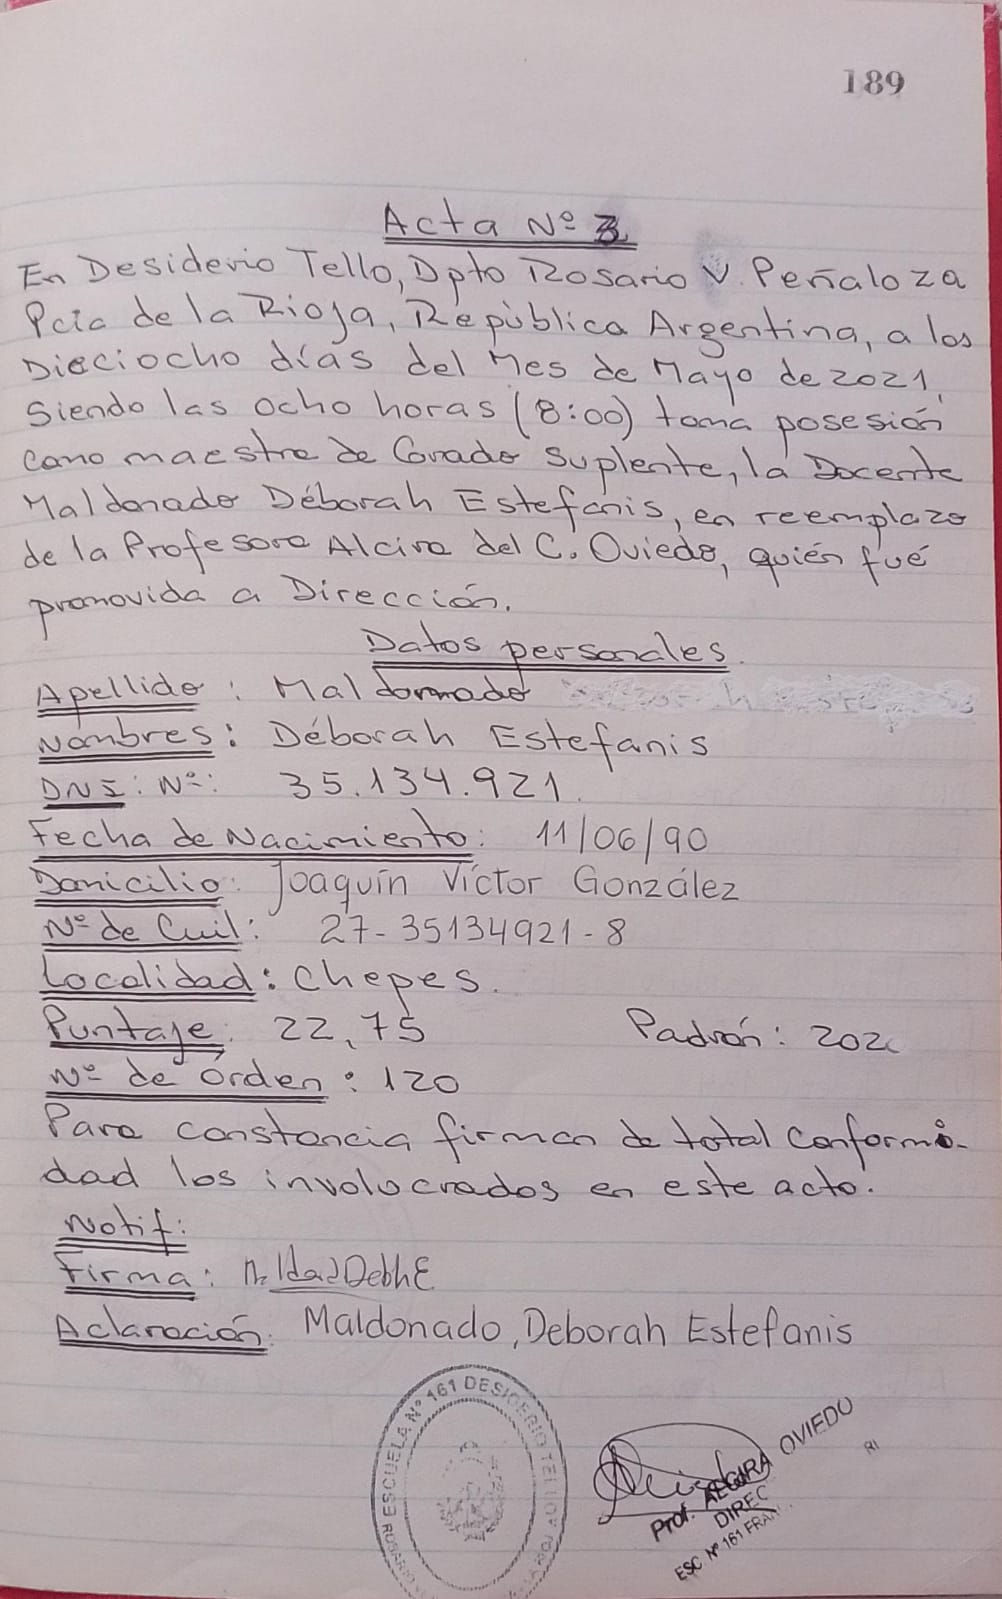 189
Acta Nº 3
En Desiderio Tello, Dpto Rosario V. Peñaloza
Pcia de la Rioja, República Argentina, a los
Dieciocho días del Mes de Mayo de 2021,
Siendo las ocho horas (8:00) toma posesión
como maestra de Grado Suplente, la Docente
Maldonado Déborah Estefanis, en reemplazo
de la Profesora Alcira del C. Oviedo, quién fué
promovida a Dirección.
Datos personales
Apellido: Maldonado
Nombres: Déborah Estefanis
DNI: Nº: 35.134.921.
Fecha de Nacimiento: 11/06/90
Domicilio: Joaquín Víctor González
Nº de Cuil: 27-35134921-8
Localidad: Chepes.
Puntaje: 22,75 Padrón:
Nº de órden: 120
Para constancia firman de total conformi-
dad los involucrados en este acto.
Notif:
Firma:
Aclaración: Maldonado, Deborah Estefanis
ESCUELA Nº 161 DESIDERIO TELLO
Prof. ALCIRA OVIEDO
DIREC
ESC Nº 161